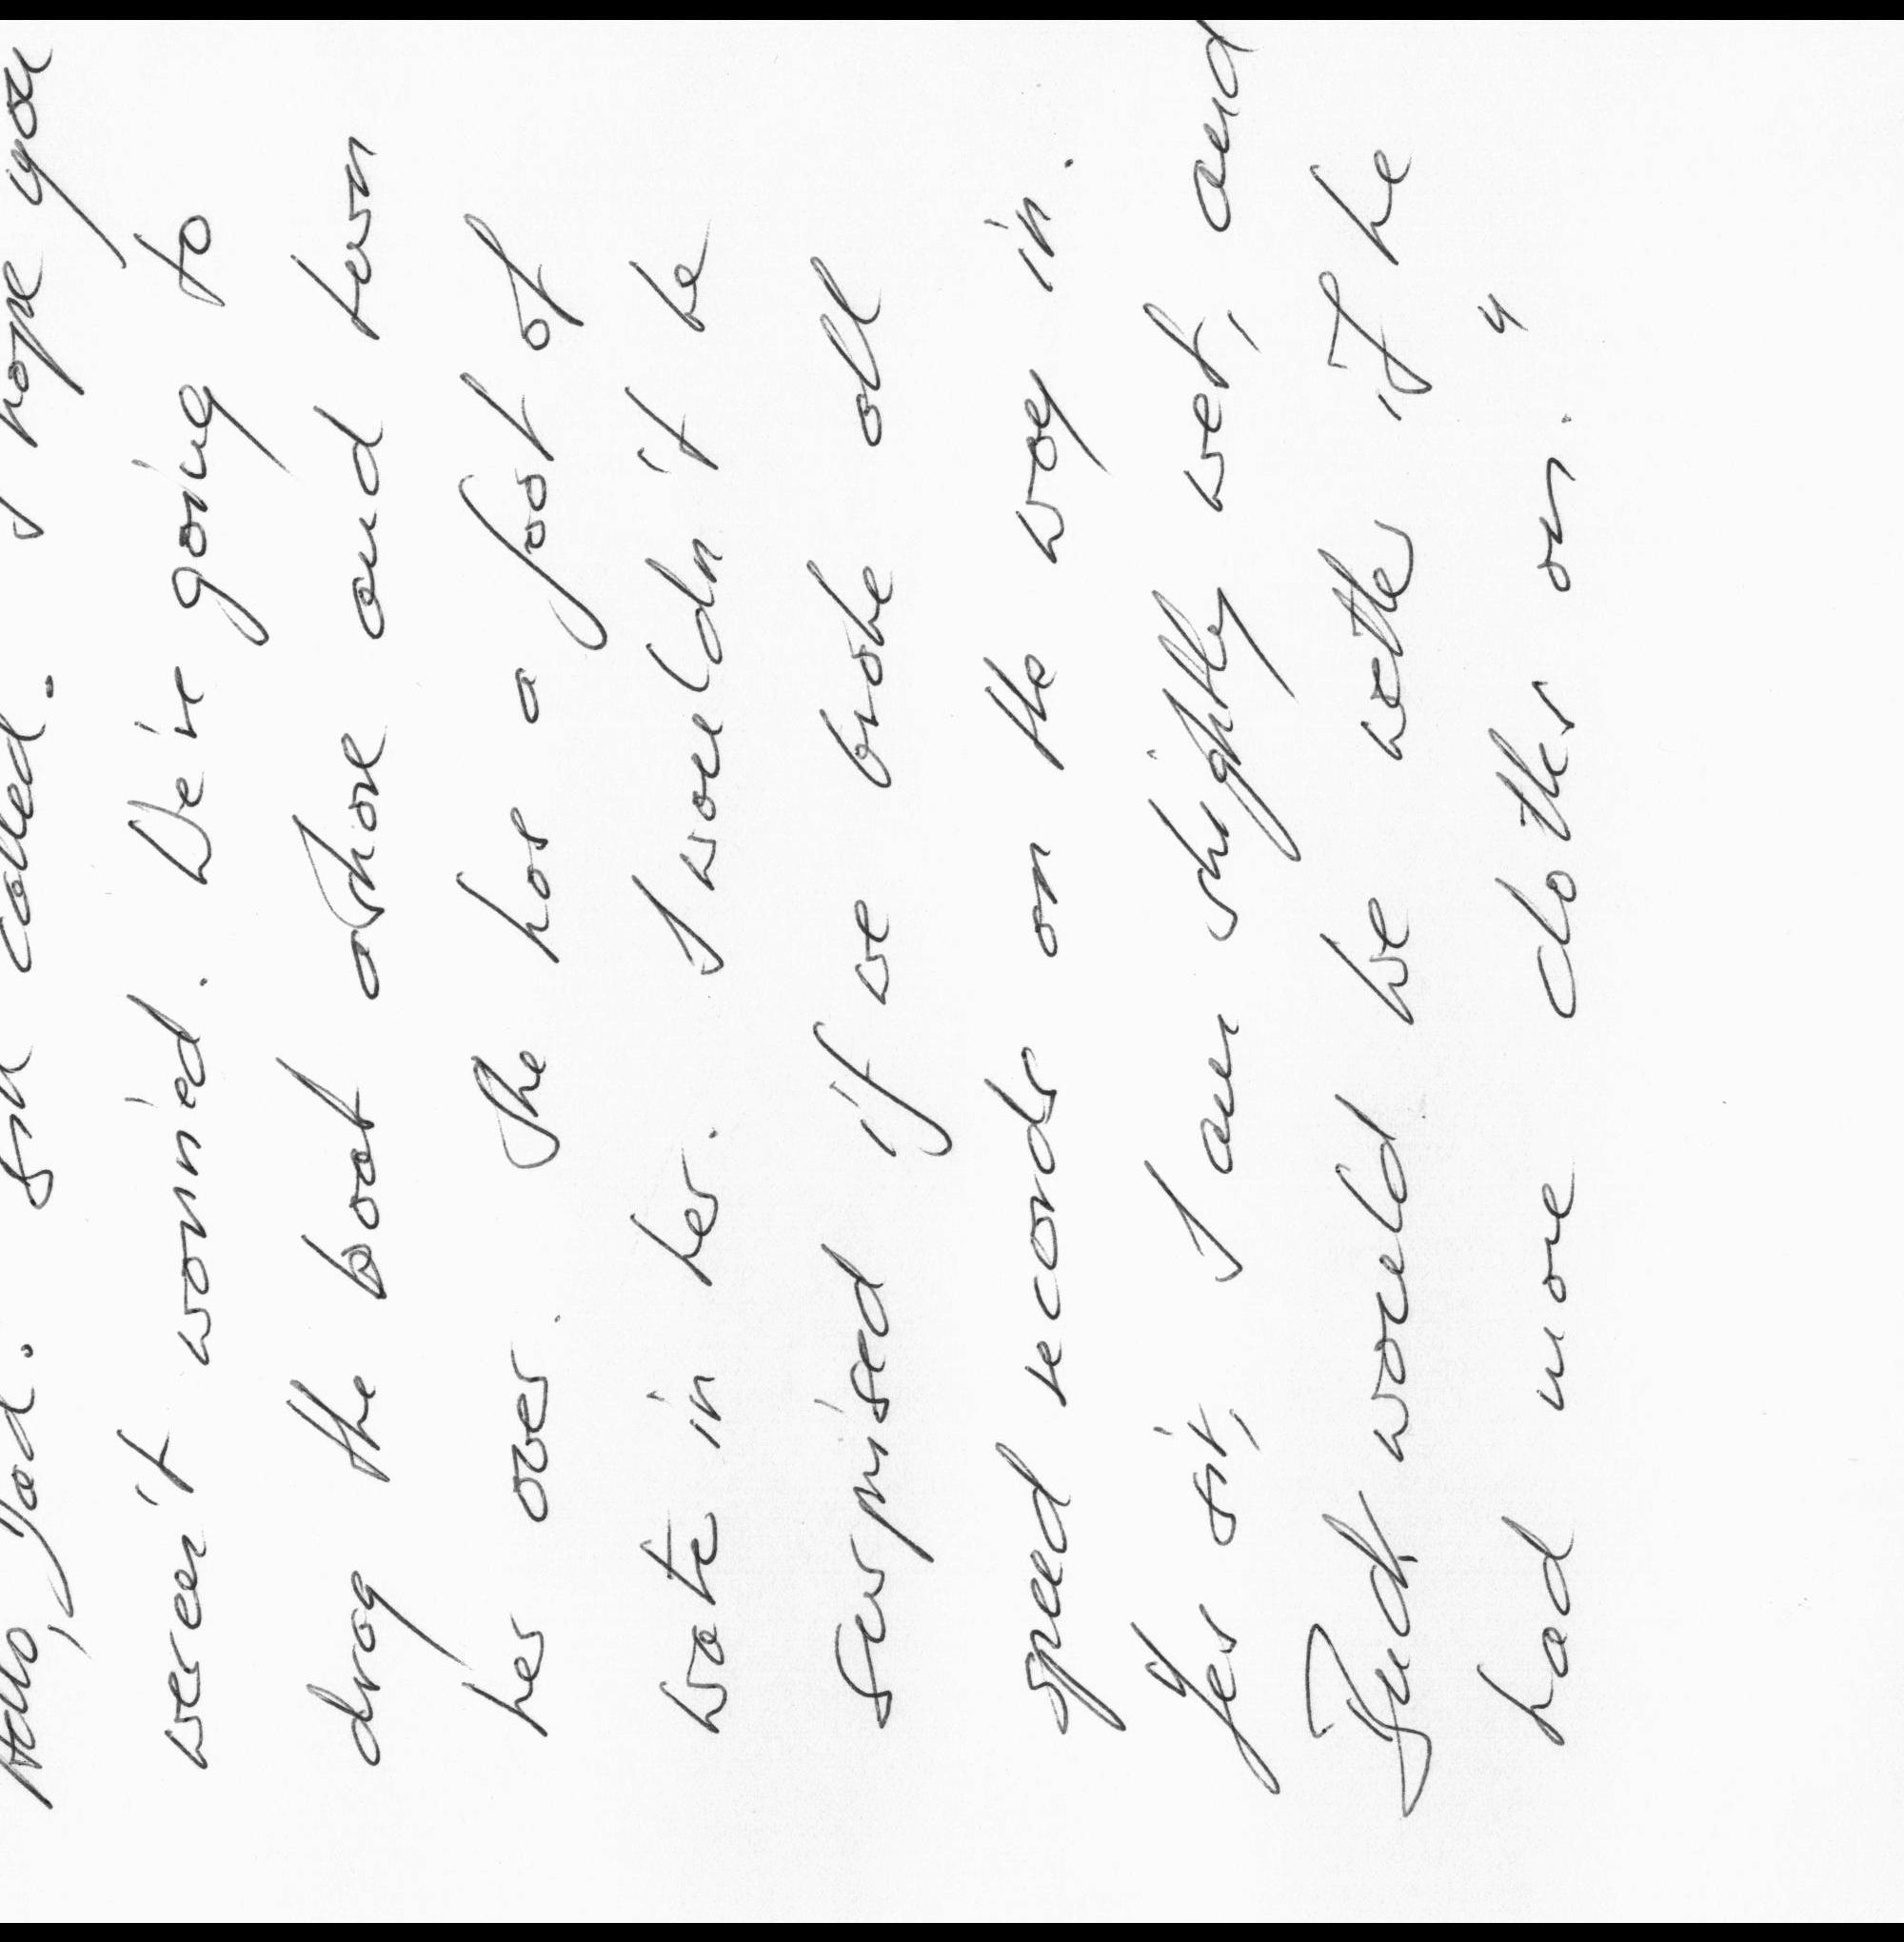 Hallo, Dad. Bill called. I hope you
weren't worried. We're going to
drag the boat ashore and turn
her over. She has a foot of
wate in her. I wouldn't be
surprised if we broke all
speed records on the way in.
Yes sir, I am slightly wet, and
would be wetter if he
had more clothes on."